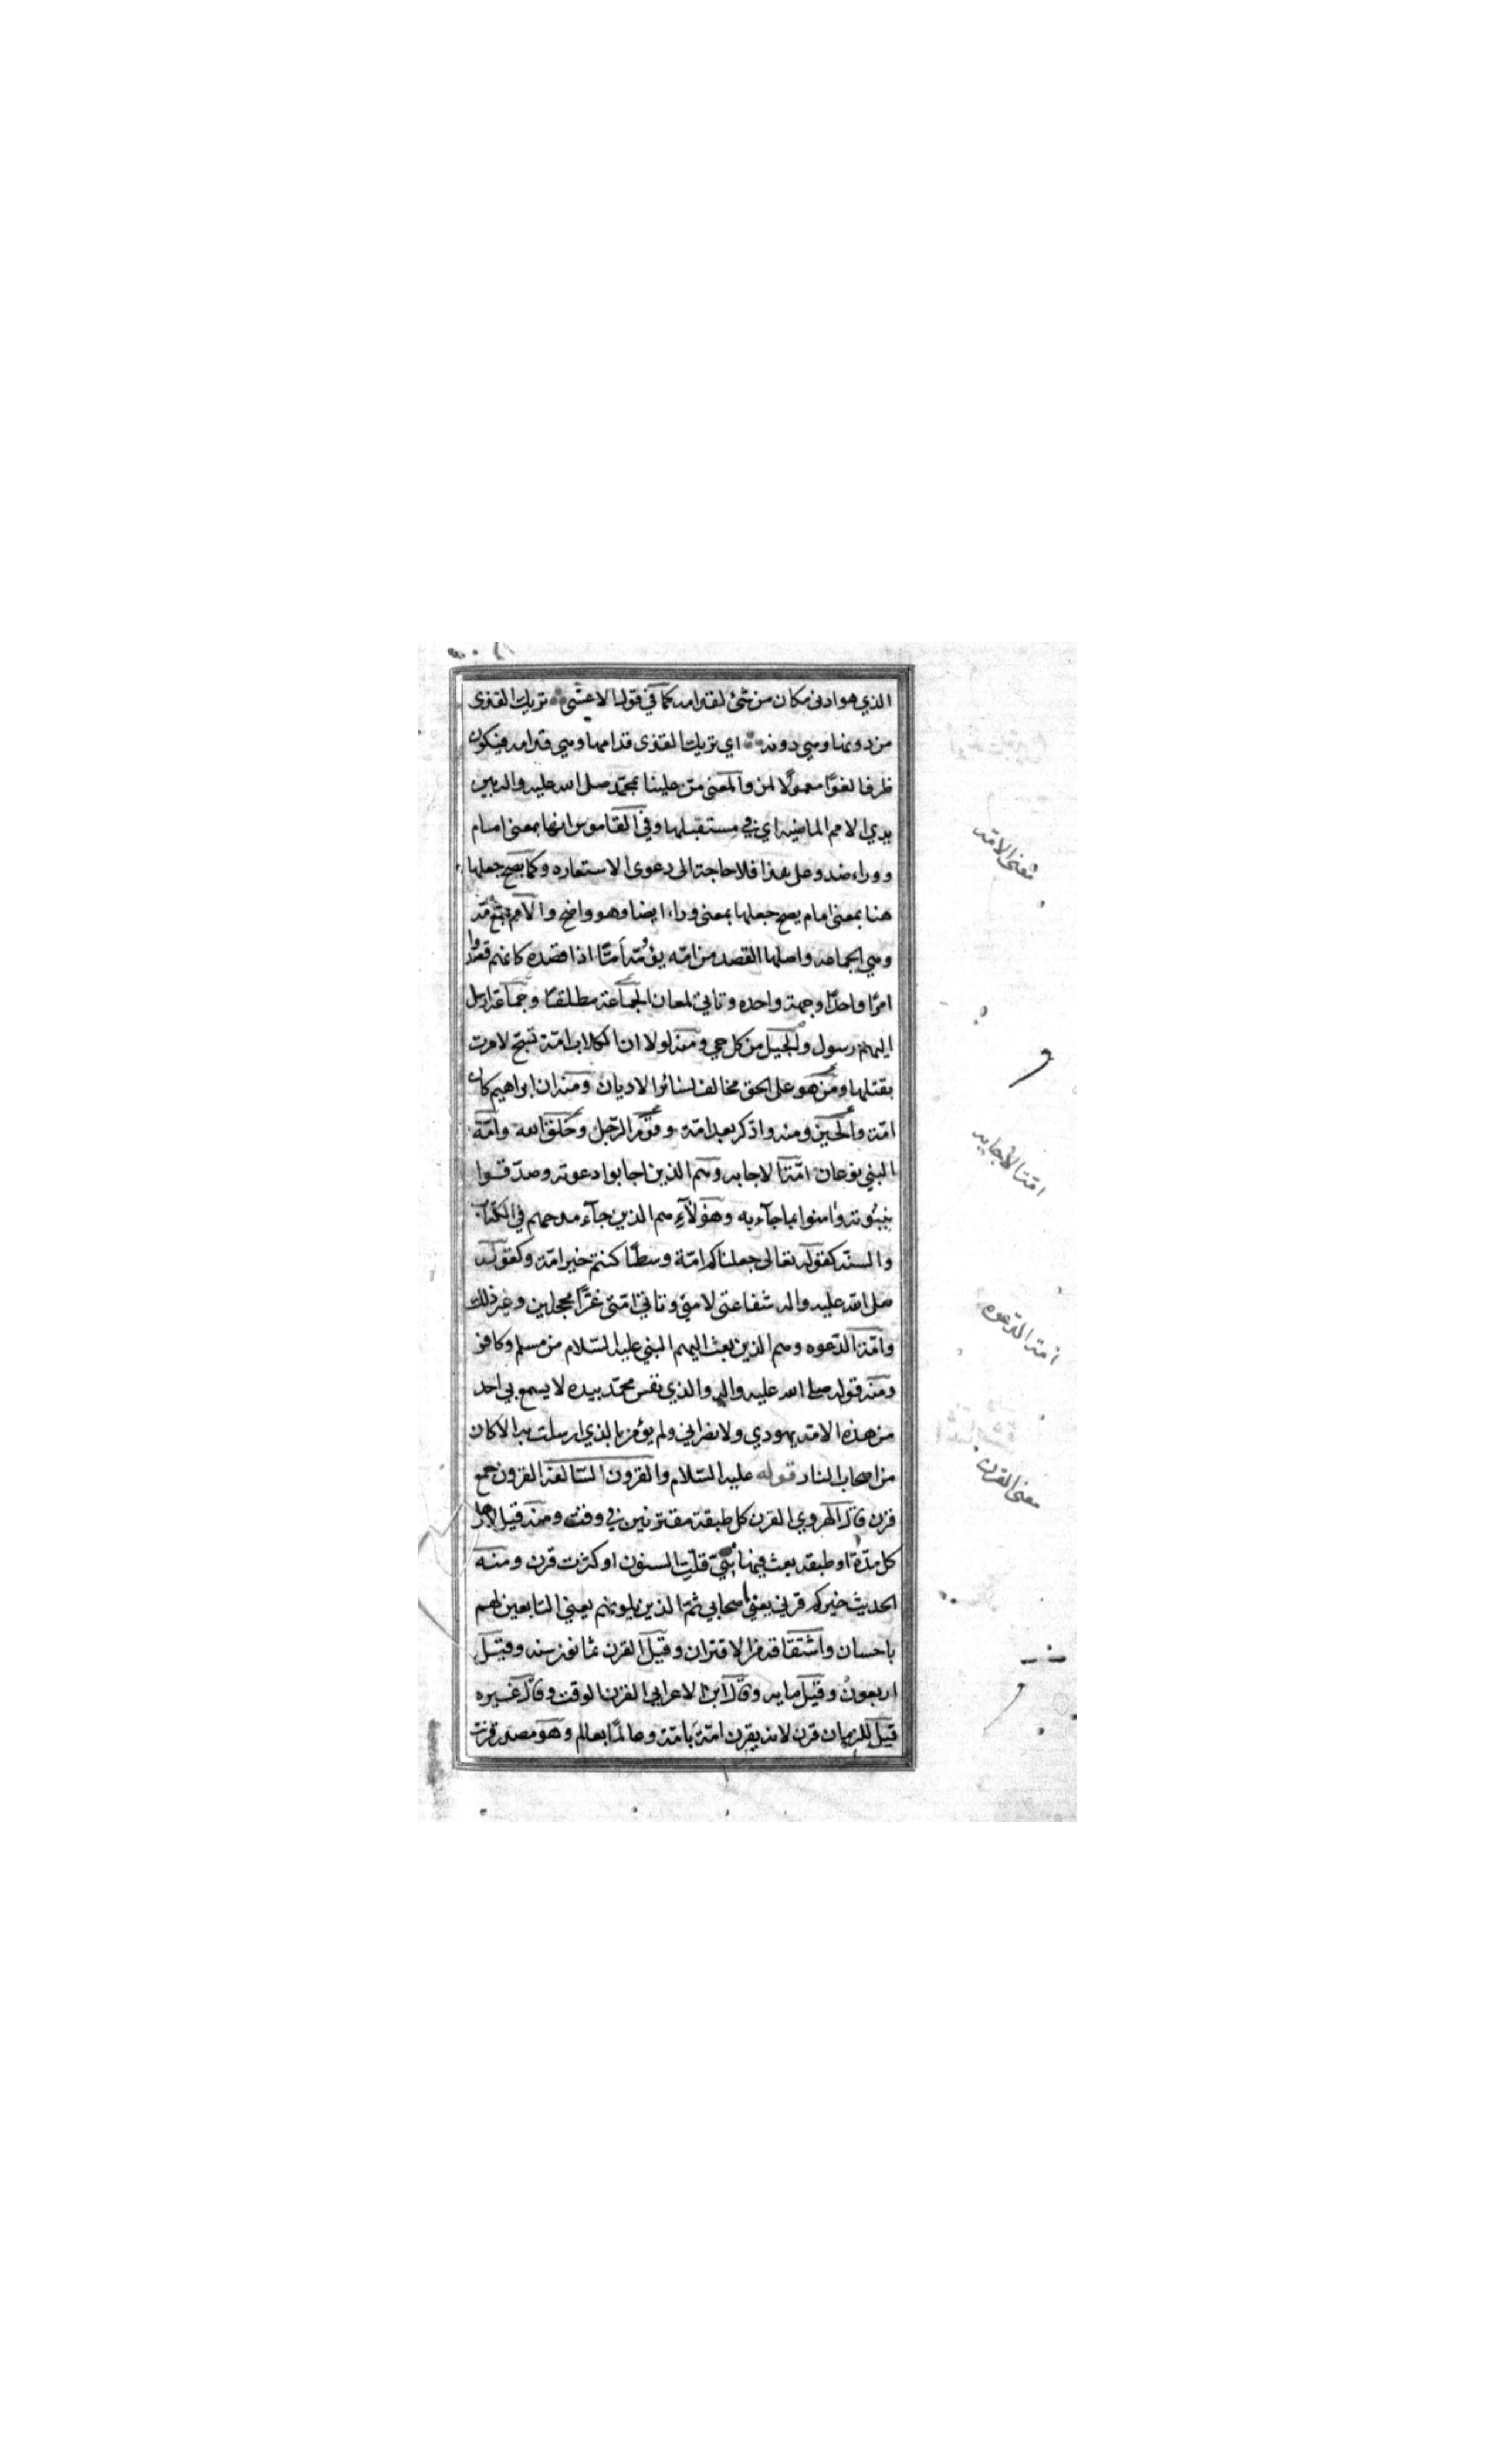 الذي هو ادنى مكان من شئ لقدامه كما في قول الاعشى تريك القذى
من دونها وهي دونه اي تريك القذى قدامها وهي قدامه فيكون
ظرفا لغوًا معمولًا لمن والمعنى منّ علينا بمحمّد صلى الله عليه واله بين
يدي الامم الماضيه اي في مستقبلها وفي القاموس انها بمعنى امام
ووراء ضد وعلى هذا فلا حاجة الى دعوى الاستعاره وكما يصح جعلها
هنا بمعنى امام يصح جعلها بمعنى وراء ايضا وهو واضح والامم جمع امّه
وهي الجماعه واصلها القصد من امّه يؤمّه اَمًّا اذا قصده كانهم قصدوا
امرًا واحدًا وجهة واحده وتاتي لمعان الجماعة مطلقًا وجماعة ارسل
اليهم رسول والجيل من كل حي ومنه لولا ان الكلاب امّة تسبّح لامرت
بقتلها ومن هو على الحق مخالف لسائر الاديان ومنه ان ابراهيم كان
امّة والحين ومنه واذكر بعد امّة وقوم الرّجل وخلق الله وامّة
النبي نوعان امّة الاجابه وهم الذين اجابوا دعوته وصدّقوا
بنبوّته وامنوا بما جآء به وهؤلآءِ هم الذين جآء مدحهم في الكتاب
والسنّه كقوله تعالى جعلناكم امّة وسطًا كنتم خير امّة وكقوله
صلى الله عليه واله شفاعتى لامتي وتاتي امّتى غرًّا محجلين وغير ذلك
وامّة الدّعوه وهم الذين بعث اليهم النبي عليه السّلام من مسلم وكافر
ومنه قوله صلى الله عليه واله والذي نفس محمّد بيده لا يسمع بي احد
من هذه الامّه يهودي ولا نصراني ولم يؤمن بالذي ارسلت به الا كان
من اصحاب النار قوله عليه السّلام والقرون السّالفة القرون جمع
قرن قال الهروي القرن كل طبقة مقترنين في وقت ومنه قيل لاهل
كل مدّة او طبقه بعث فيها نبيّ قلّت السنون او كثرت قرن ومنه
الحديث خيركم قرني يعني اصحابي ثمّ الذين يلونهم يعني التابعين لهم
باحسان واشتقاقه من الاقتران وقيل القرن ثمانون سنه وقيل
اربعون وقيل مايه وقال ابن الاعرابي القرن الوقت وقال غيره
قيل للزمان قرن لانه يقرن امّة بامّة وعالمًا بعالم وهو مصدر قرنت
معنى الامّه
امّة الاجابه
امّة الدّعوه
معنى القرن